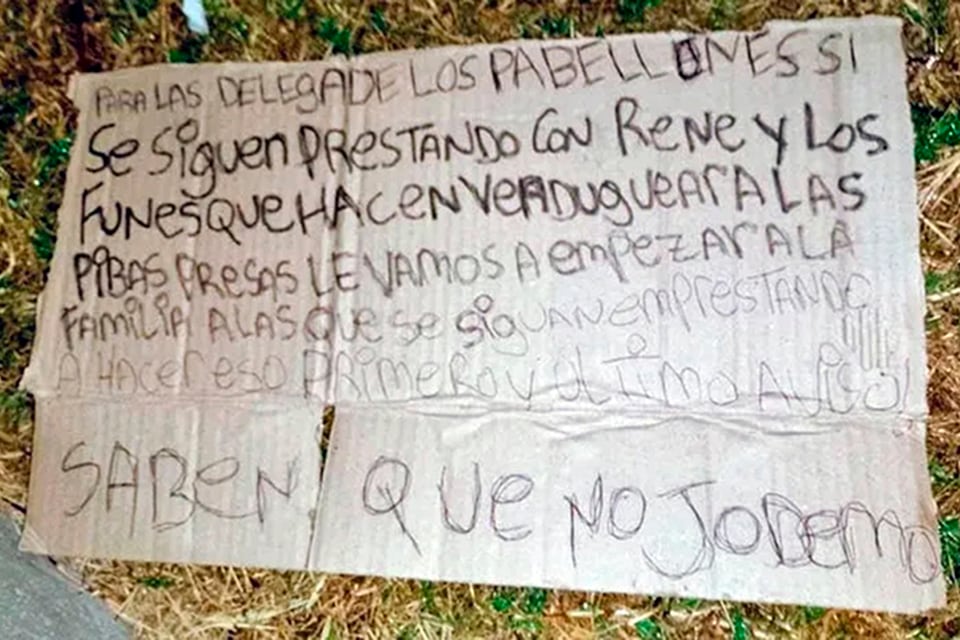 PARA LAS DELEGADE LOS PABELLONES SI
Se SiGUen PRESTANDO CON ReNe Y LOS
FUNES QUE HACEN VERDUGUEAR A LAS
PIBAS PRESAS LE VAMOS A emPEZAR A LA
FAMILIA A LAS QUE se siGUAN emPRESTANDO
A HACer eso PRIMERO Y ULTIMO AVISO!
SABeN QUe NO JODemO